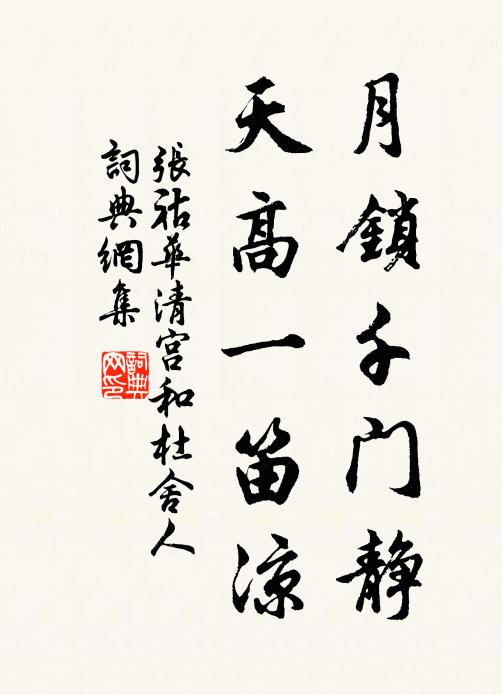 月鎖千门静
天高一笛凉
張祜華清宮和杜舍人
詞典網集
詞典
网印